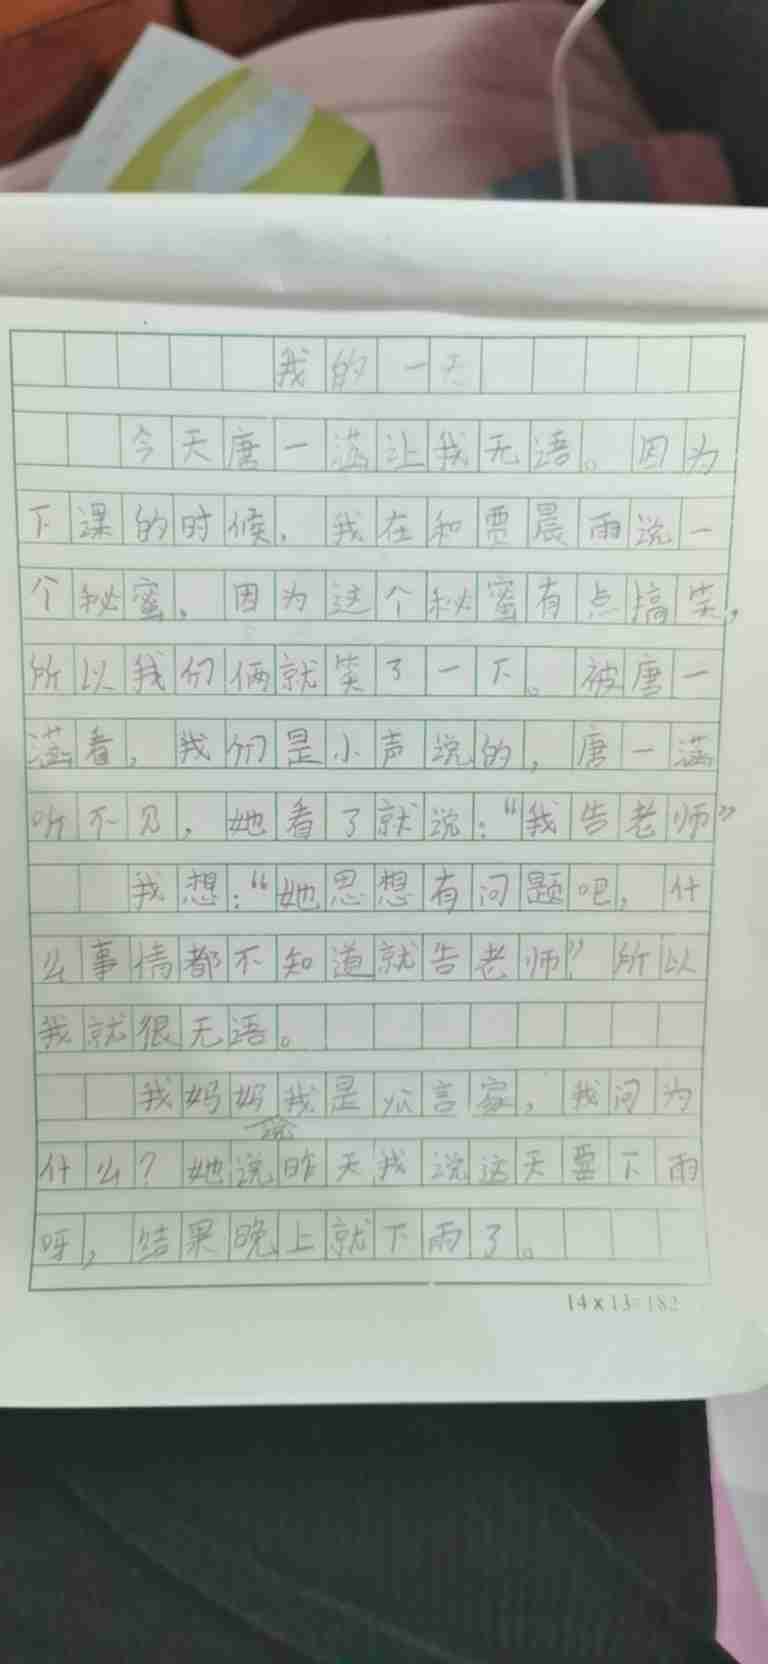 我的一天
今天唐一涵让我无语。因为
下课的时候,我在和贾晨雨说一
个秘蜜,因为这个秘蜜有点搞笑,
所以我们俩就笑了一下。被唐一
涵看,我们是小声说的,唐一涵
听不见,她看了就说:“我告老师”
我想:“她思想有问题吧,什
么事情都不知道就告老师”所以
我就很无语。
我妈妈说我是 言家,我问为
什么?她说昨天我说这天要下雨
呀,结果晚上就下雨了。
14×13=182